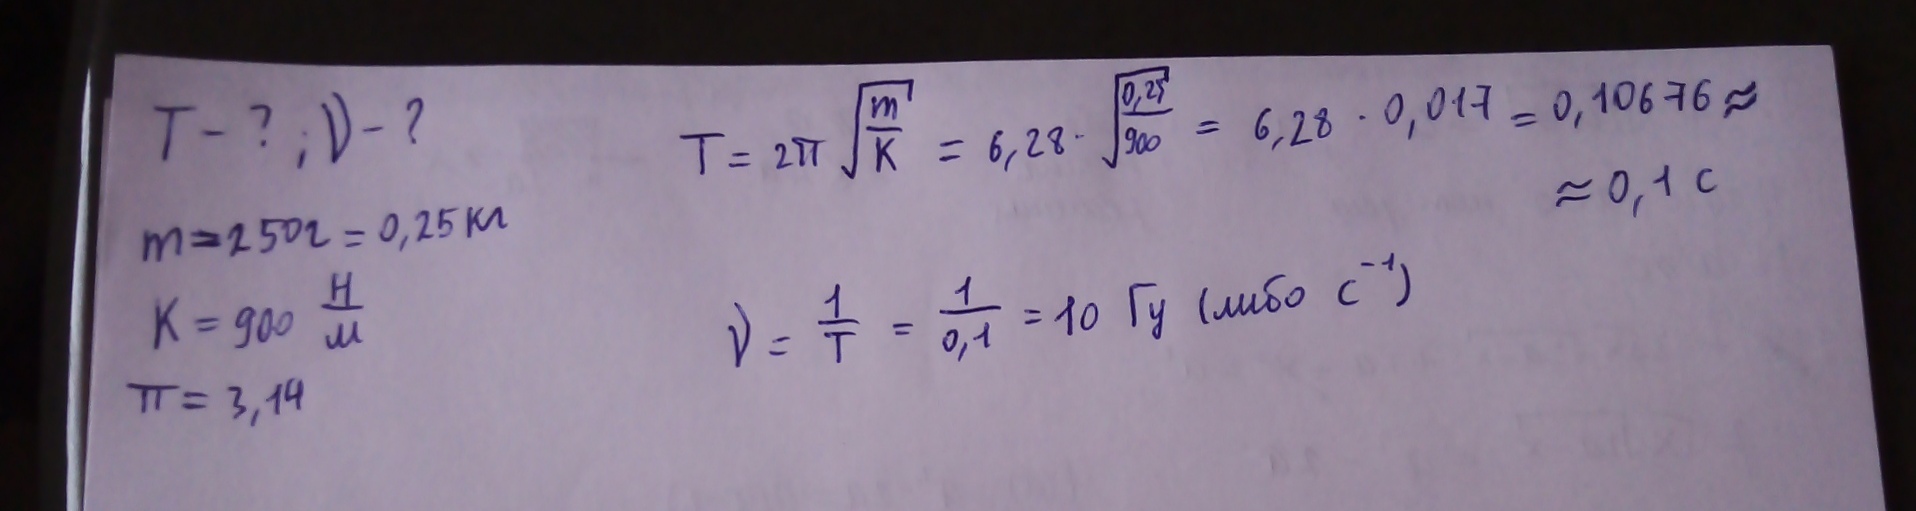 T - ? ; ν - ?
m = 250г = 0,25 кг
K = 900 Н/м
π = 3,14
T = 2π √(m/K) = 6,28 · √(0,25/900) = 6,28 · 0,017 = 0,10676 ≈
≈ 0,1 с
ν = 1/T = 1/0,1 = 10 Гц (либо с⁻¹)